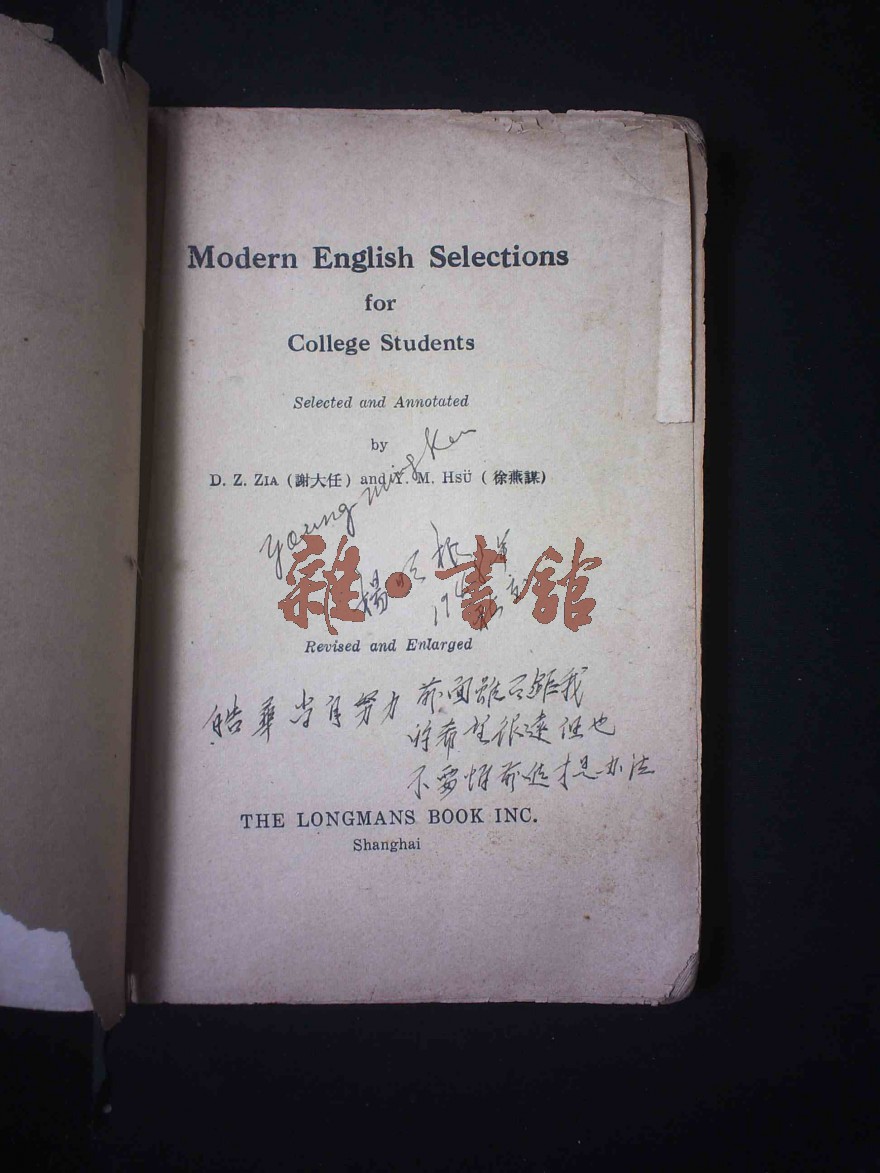 Modern English Selections
for
College Students
Selected and Annotated
by
D. Z. ZIA (謝大任) and Y. M. HSÜ (徐燕謀)
Young ming Ken
雜·書館
楊明根
Revised and Enlarged
皓華 当自努力 前面雖只距我
许希望很遠 但也
不要怕前進才是办法
THE LONGMANS BOOK INC.
Shanghai